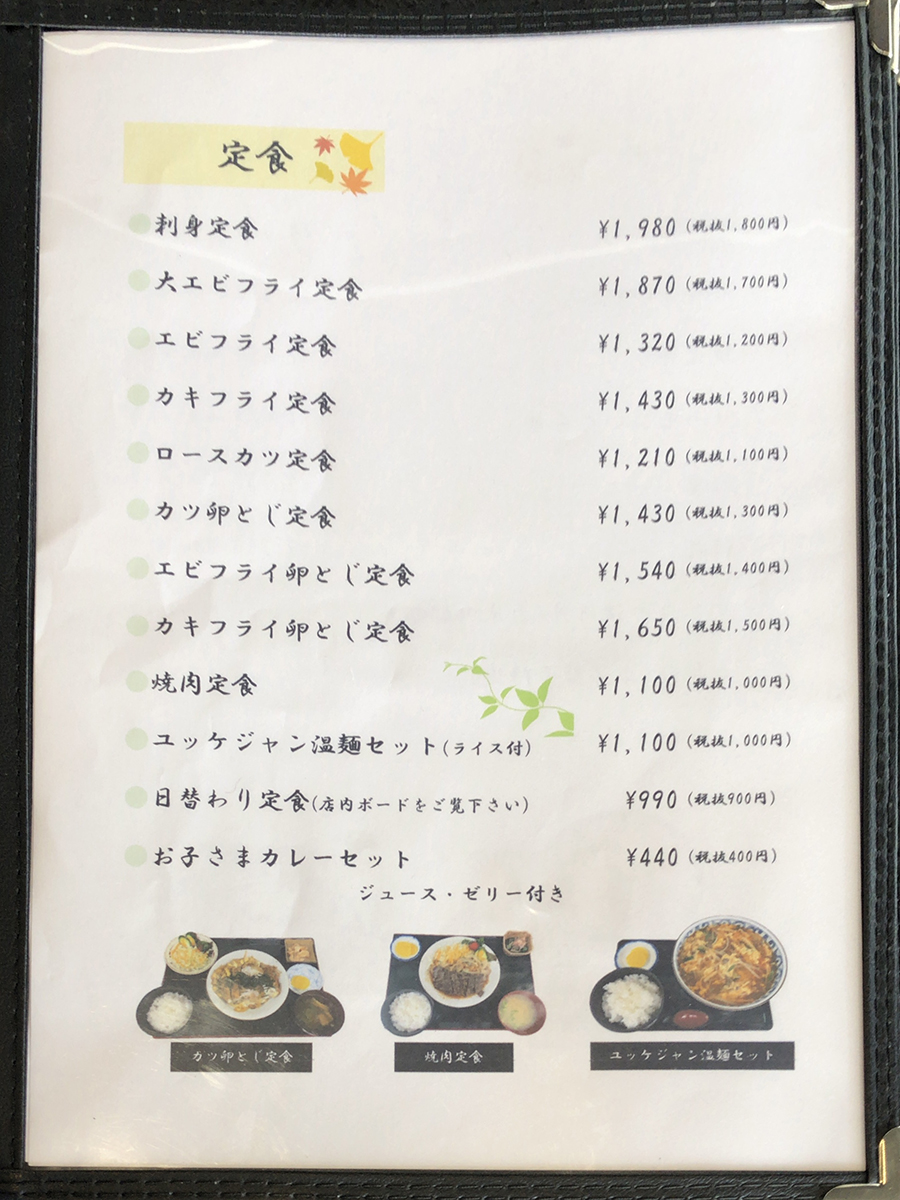 定食
刺身定食 ¥1,980(税抜1,800円)
大エビフライ定食 ¥1,870(税抜1,700円)
エビフライ定食 ¥1,320(税抜1,200円)
カキフライ定食 ¥1,430(税抜1,300円)
ロースカツ定食 ¥1,210(税抜1,100円)
カツ卵とじ定食 ¥1,430(税抜1,300円)
エビフライ卵とじ定食 ¥1,540(税抜1,400円)
カキフライ卵とじ定食 ¥1,650(税抜1,500円)
焼肉定食 ¥1,100(税抜1,000円)
ユッケジャン温麺セット(ライス付) ¥1,100(税抜1,000円)
日替わり定食(店内ボードをご覧下さい) ¥990(税抜900円)
お子さまカレーセット ¥440(税抜400円)
ジュース・ゼリー付き
カツ卵とじ定食 焼肉定食 ユッケジャン温麺セット